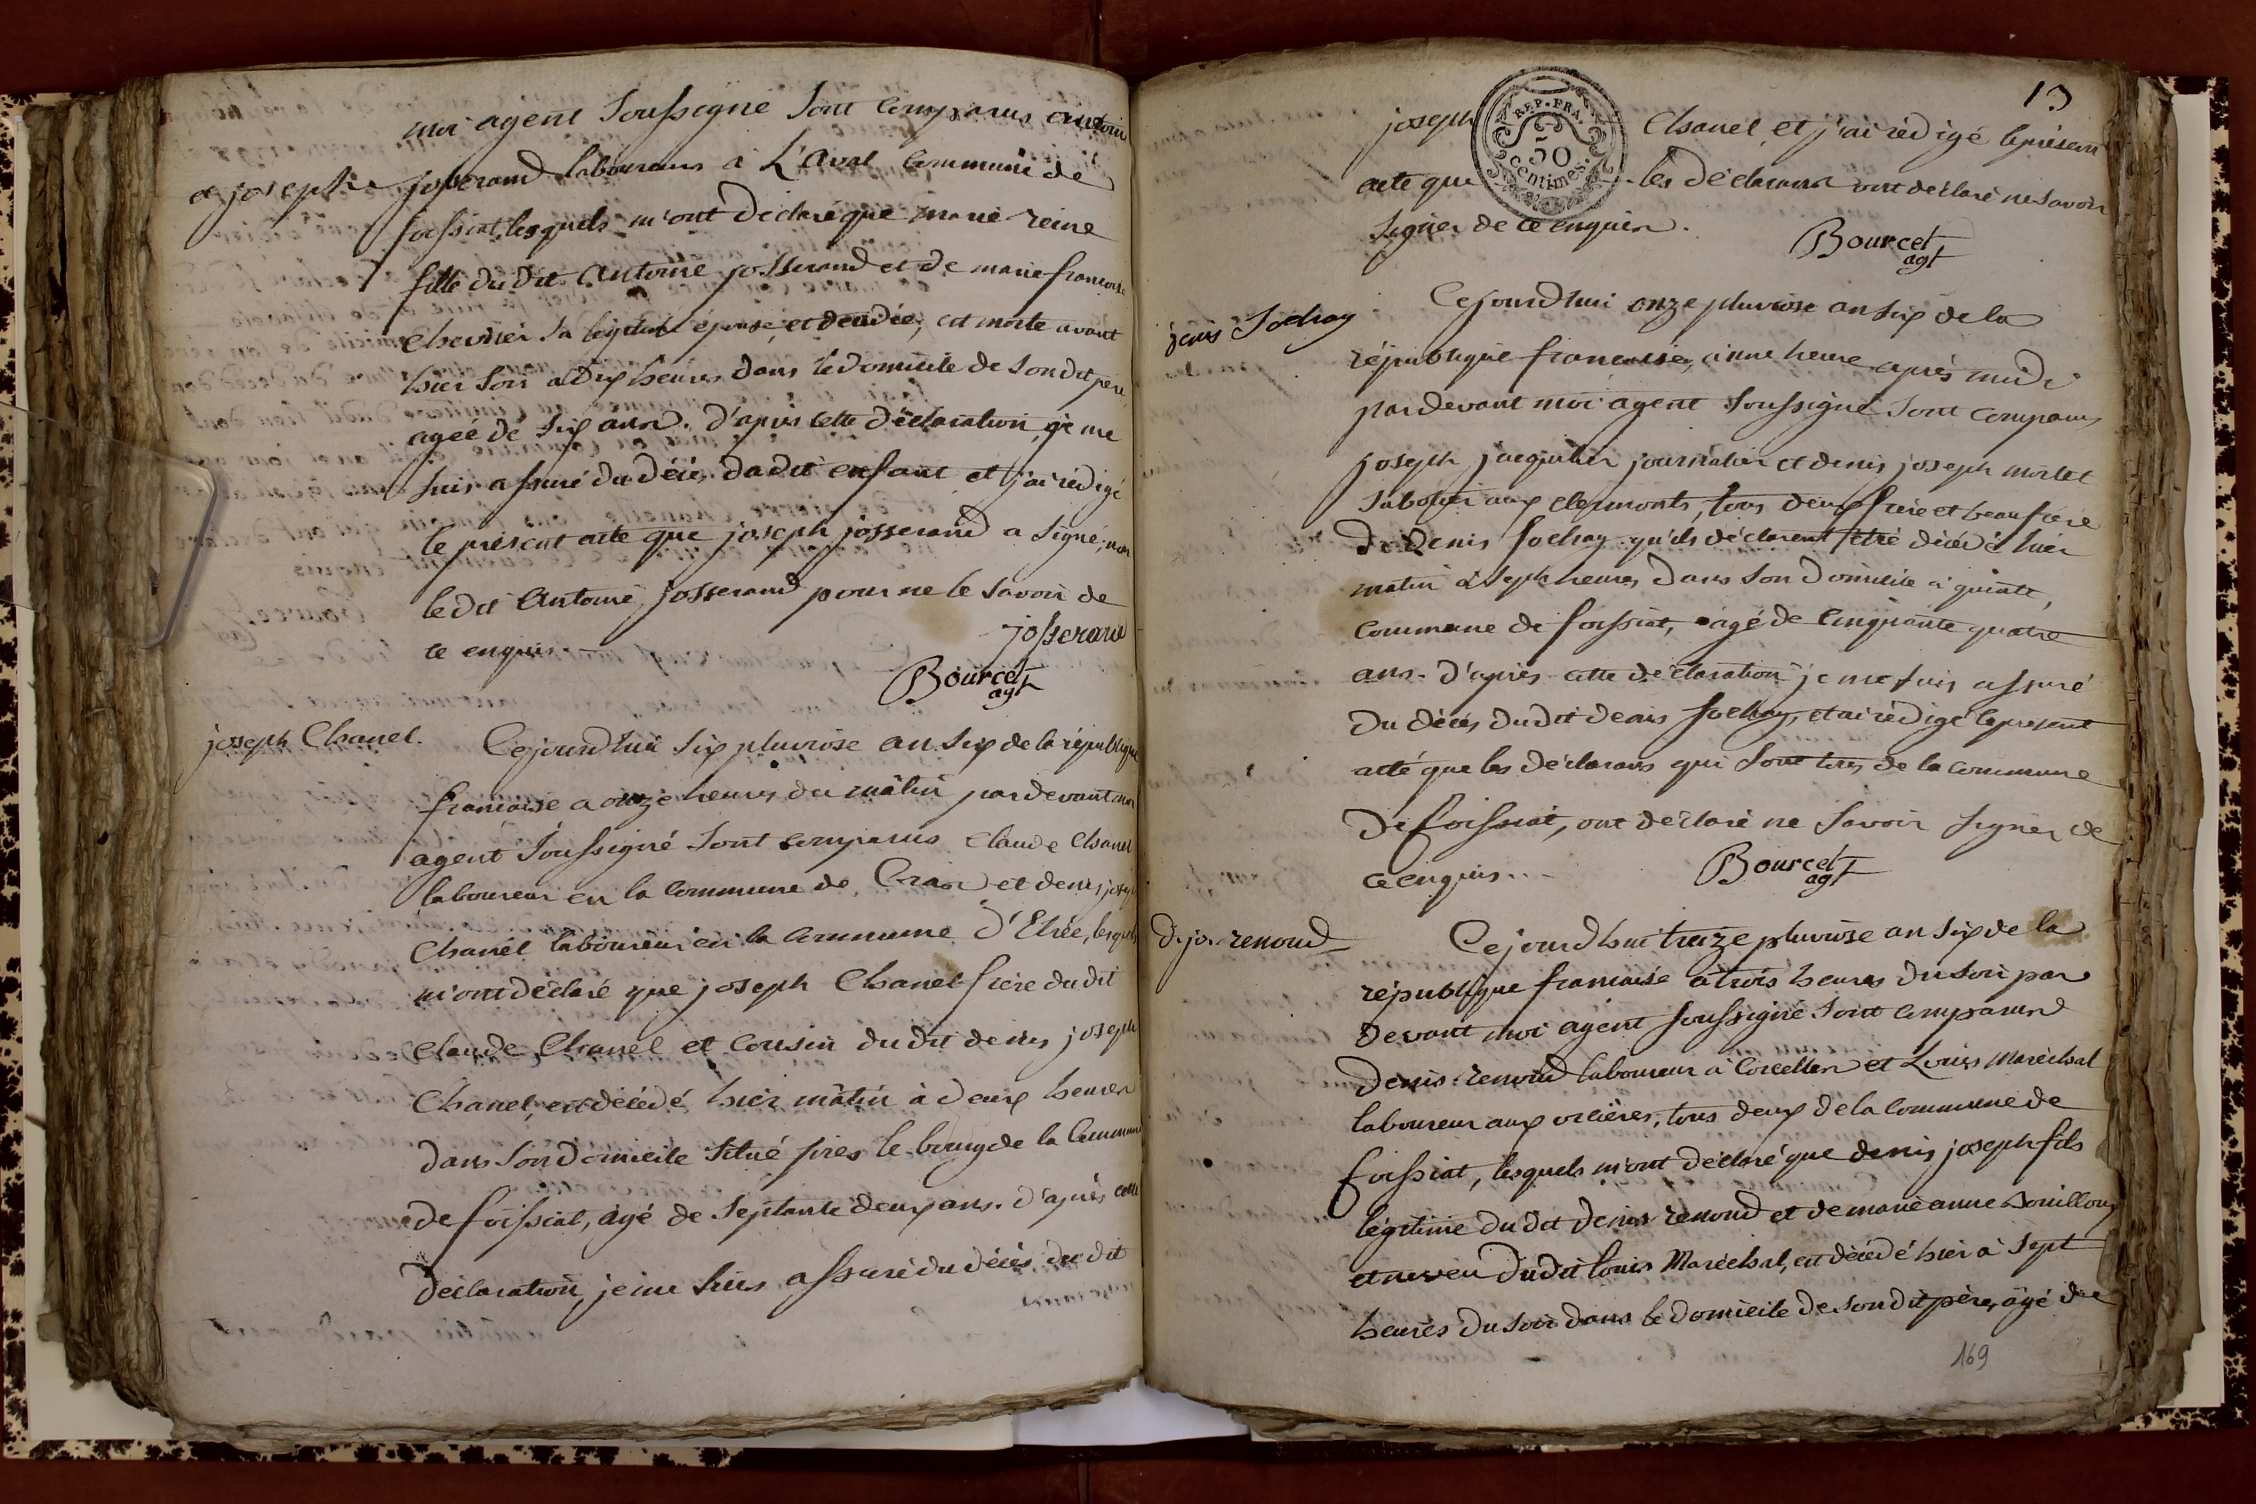 moi agent Soussigné Sont comparus antoine
et joseph josserand laboureurs a L'aval commune de
foissiat, lesquels m'ont déclaré que marie reine
fille du dit Antoine josserand et de marie francoise
chevrier sa legitime épouse, et décédée, est morte avant
hier soir a Dix heures dans le domicile de son dit père,
agée de six ans. D'après cette déclaration, je me
suis assuré du décès dudit enfant et j'ai rédigé
le présent acte que joseph josserand a signé, non
le dit Antoine josserand pour ne le savoir de
ce enquis. josserand
Bourcet
agt
joseph Chanel.
Cejourdhui six pluviose an six de la république
francaise a onze heures du mâtin pardevant moi
agent Soussigné Sont comparus claude chanel
laboureur en la commune de Cras et denis joseph
Chanel laboureur en la commune d'Etrée, lesquels
m'ont déclaré que joseph Chanel frère du dit
claude Chanel et cousin du dit denis joseph
Chanel, est décédé hier mâtin à deux heures
dans son domicile situé près le bourg de la commune
de foissiat, âgé de septante deux ans. d'après cette
déclaration, je me suis assuré du décès du dit
13
joseph Chanel et j'ai rédigé le présent
acte que les déclarans ont déclaré ne savoir
signer de ce enquis.
REP. FRA.
50
centimes.
Bourcet
agt
denis Sochay
Cejourd'hui onze pluviose an six de la
république francaise, a une heure après midi
pardevant moi agent soussigné sont comparus
joseph jacquier journalier et denis joseph mortel
sabotier aux clermonts, tous deux frère et beaufrère
de Denis Sochay qu'ils déclarent être décédé hier
matin à sept heures dans son domicile a quinte,
commune de foissiat, agé de cinquante quatre
ans. D'après cette déclaration je me suis assuré
du décès dudit denis Sochay, et ai rédigé le present
acte que les déclarans qui sont tous de la commune
de foissiat, ont déclaré ne savoir signer de
ce enquis.
Bourcet
agt
D. jos. renoud
Cejourdhui treize pluviose an six de la
république francaise a trois heures du soir par
devant moi agent soussigné sont comparus
denis renoud laboureur a Corcelles et Louis Maréchal
laboureur aux orcières, tous deux de la commune de
foissiat, lesquels m'ont déclaré que denis joseph fils
légitime du dit denis renoud et de marie anne Bouilloux
et neveu dudit louis Maréchal, est décédé hier à sept
heures du soir dans le domicile de son dit père, âgé de
169